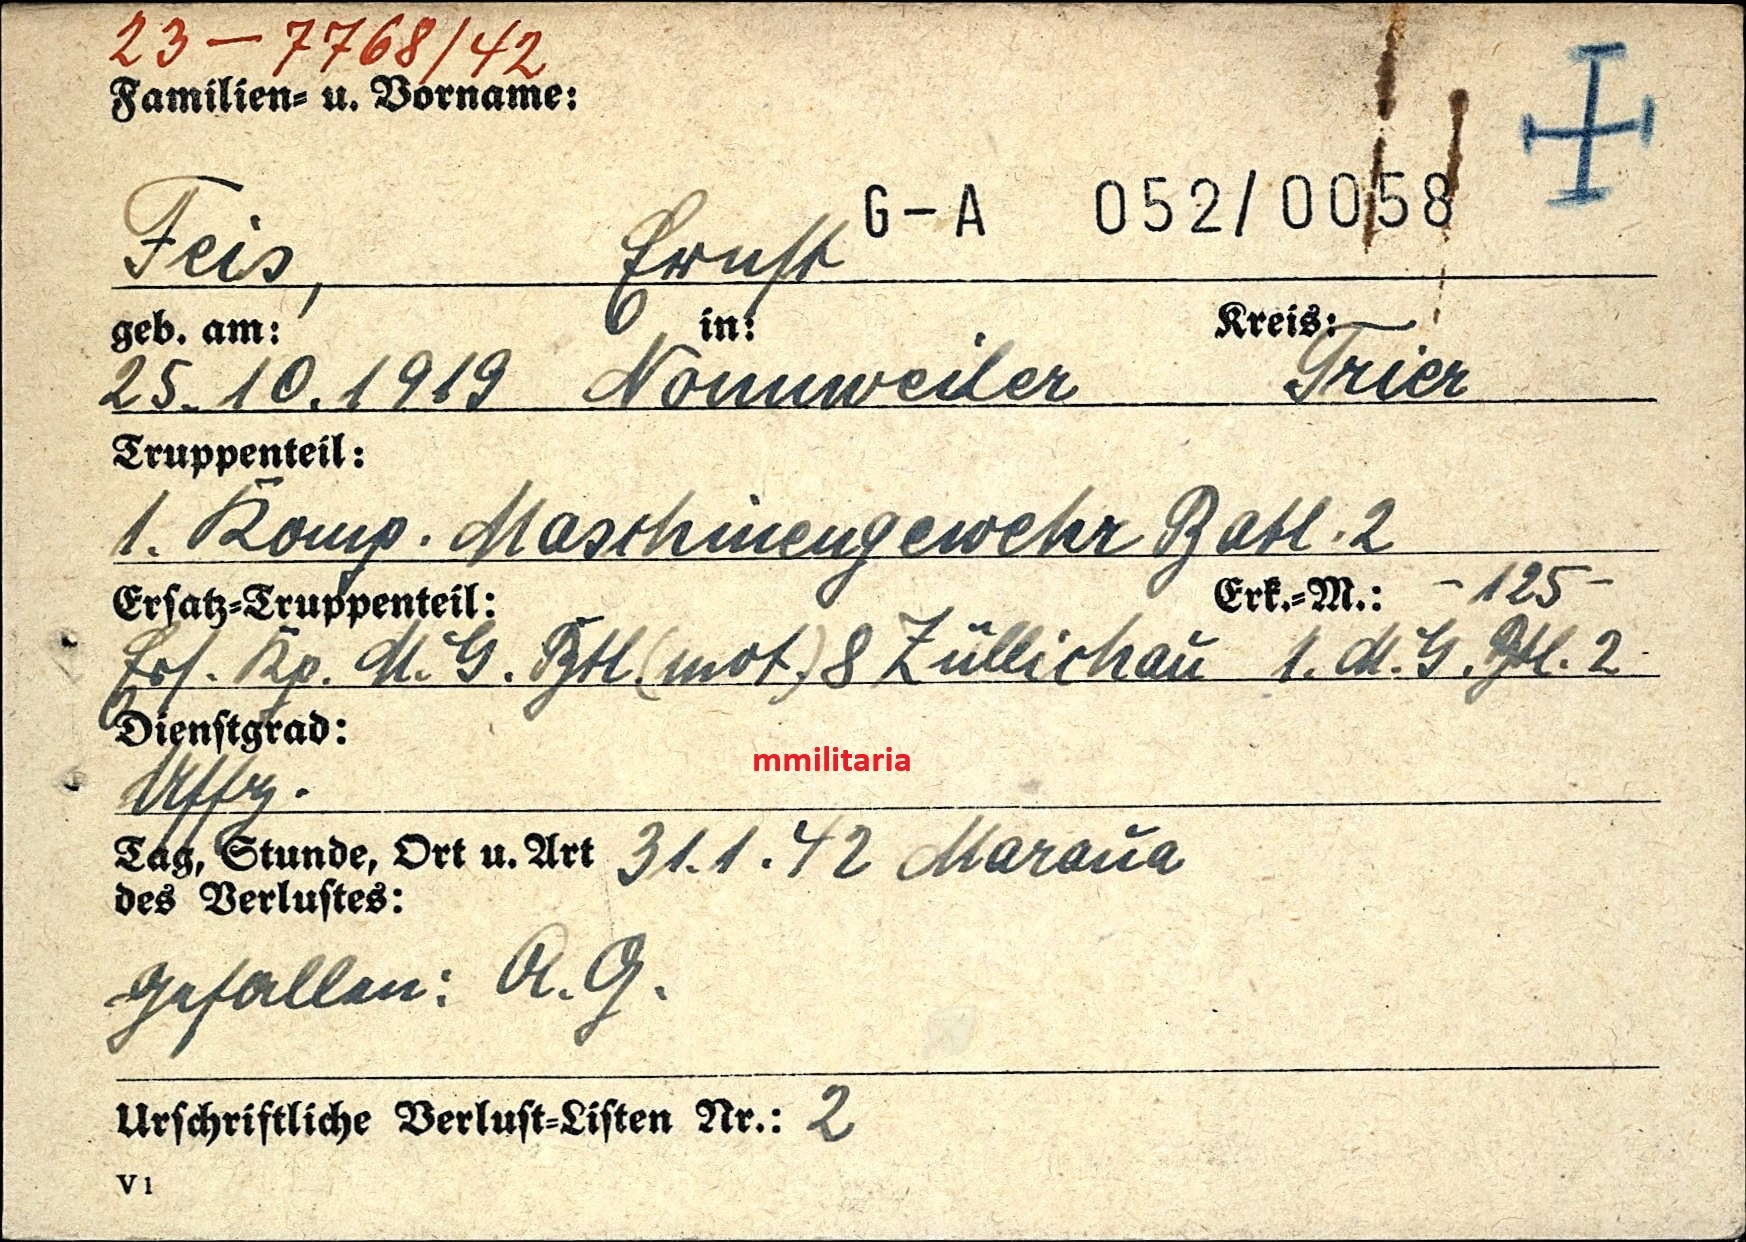 23 – 7768/42
Familien- u. Vorname:
G-A 052/0058
Feis, Ernst
geb. am: in: Kreis:
25.10.1919 Nonnweiler Trier
Truppenteil:
1. Komp. Maschinengewehr Batl. 2
Ersatz-Truppenteil: Erk.-M.: -125-
Ers. Kp. M.G. Btl. (mot.) 8 Züllichau 1. M.G. Btl. 2
Dienstgrad:
Uffz.
mmilitaria
Tag, Stunde, Ort u. Art 31.1.42 Maraua
des Verlustes:
gefallen: A.G.
Urschriftliche Verlust-Listen Nr.: 2
V 1